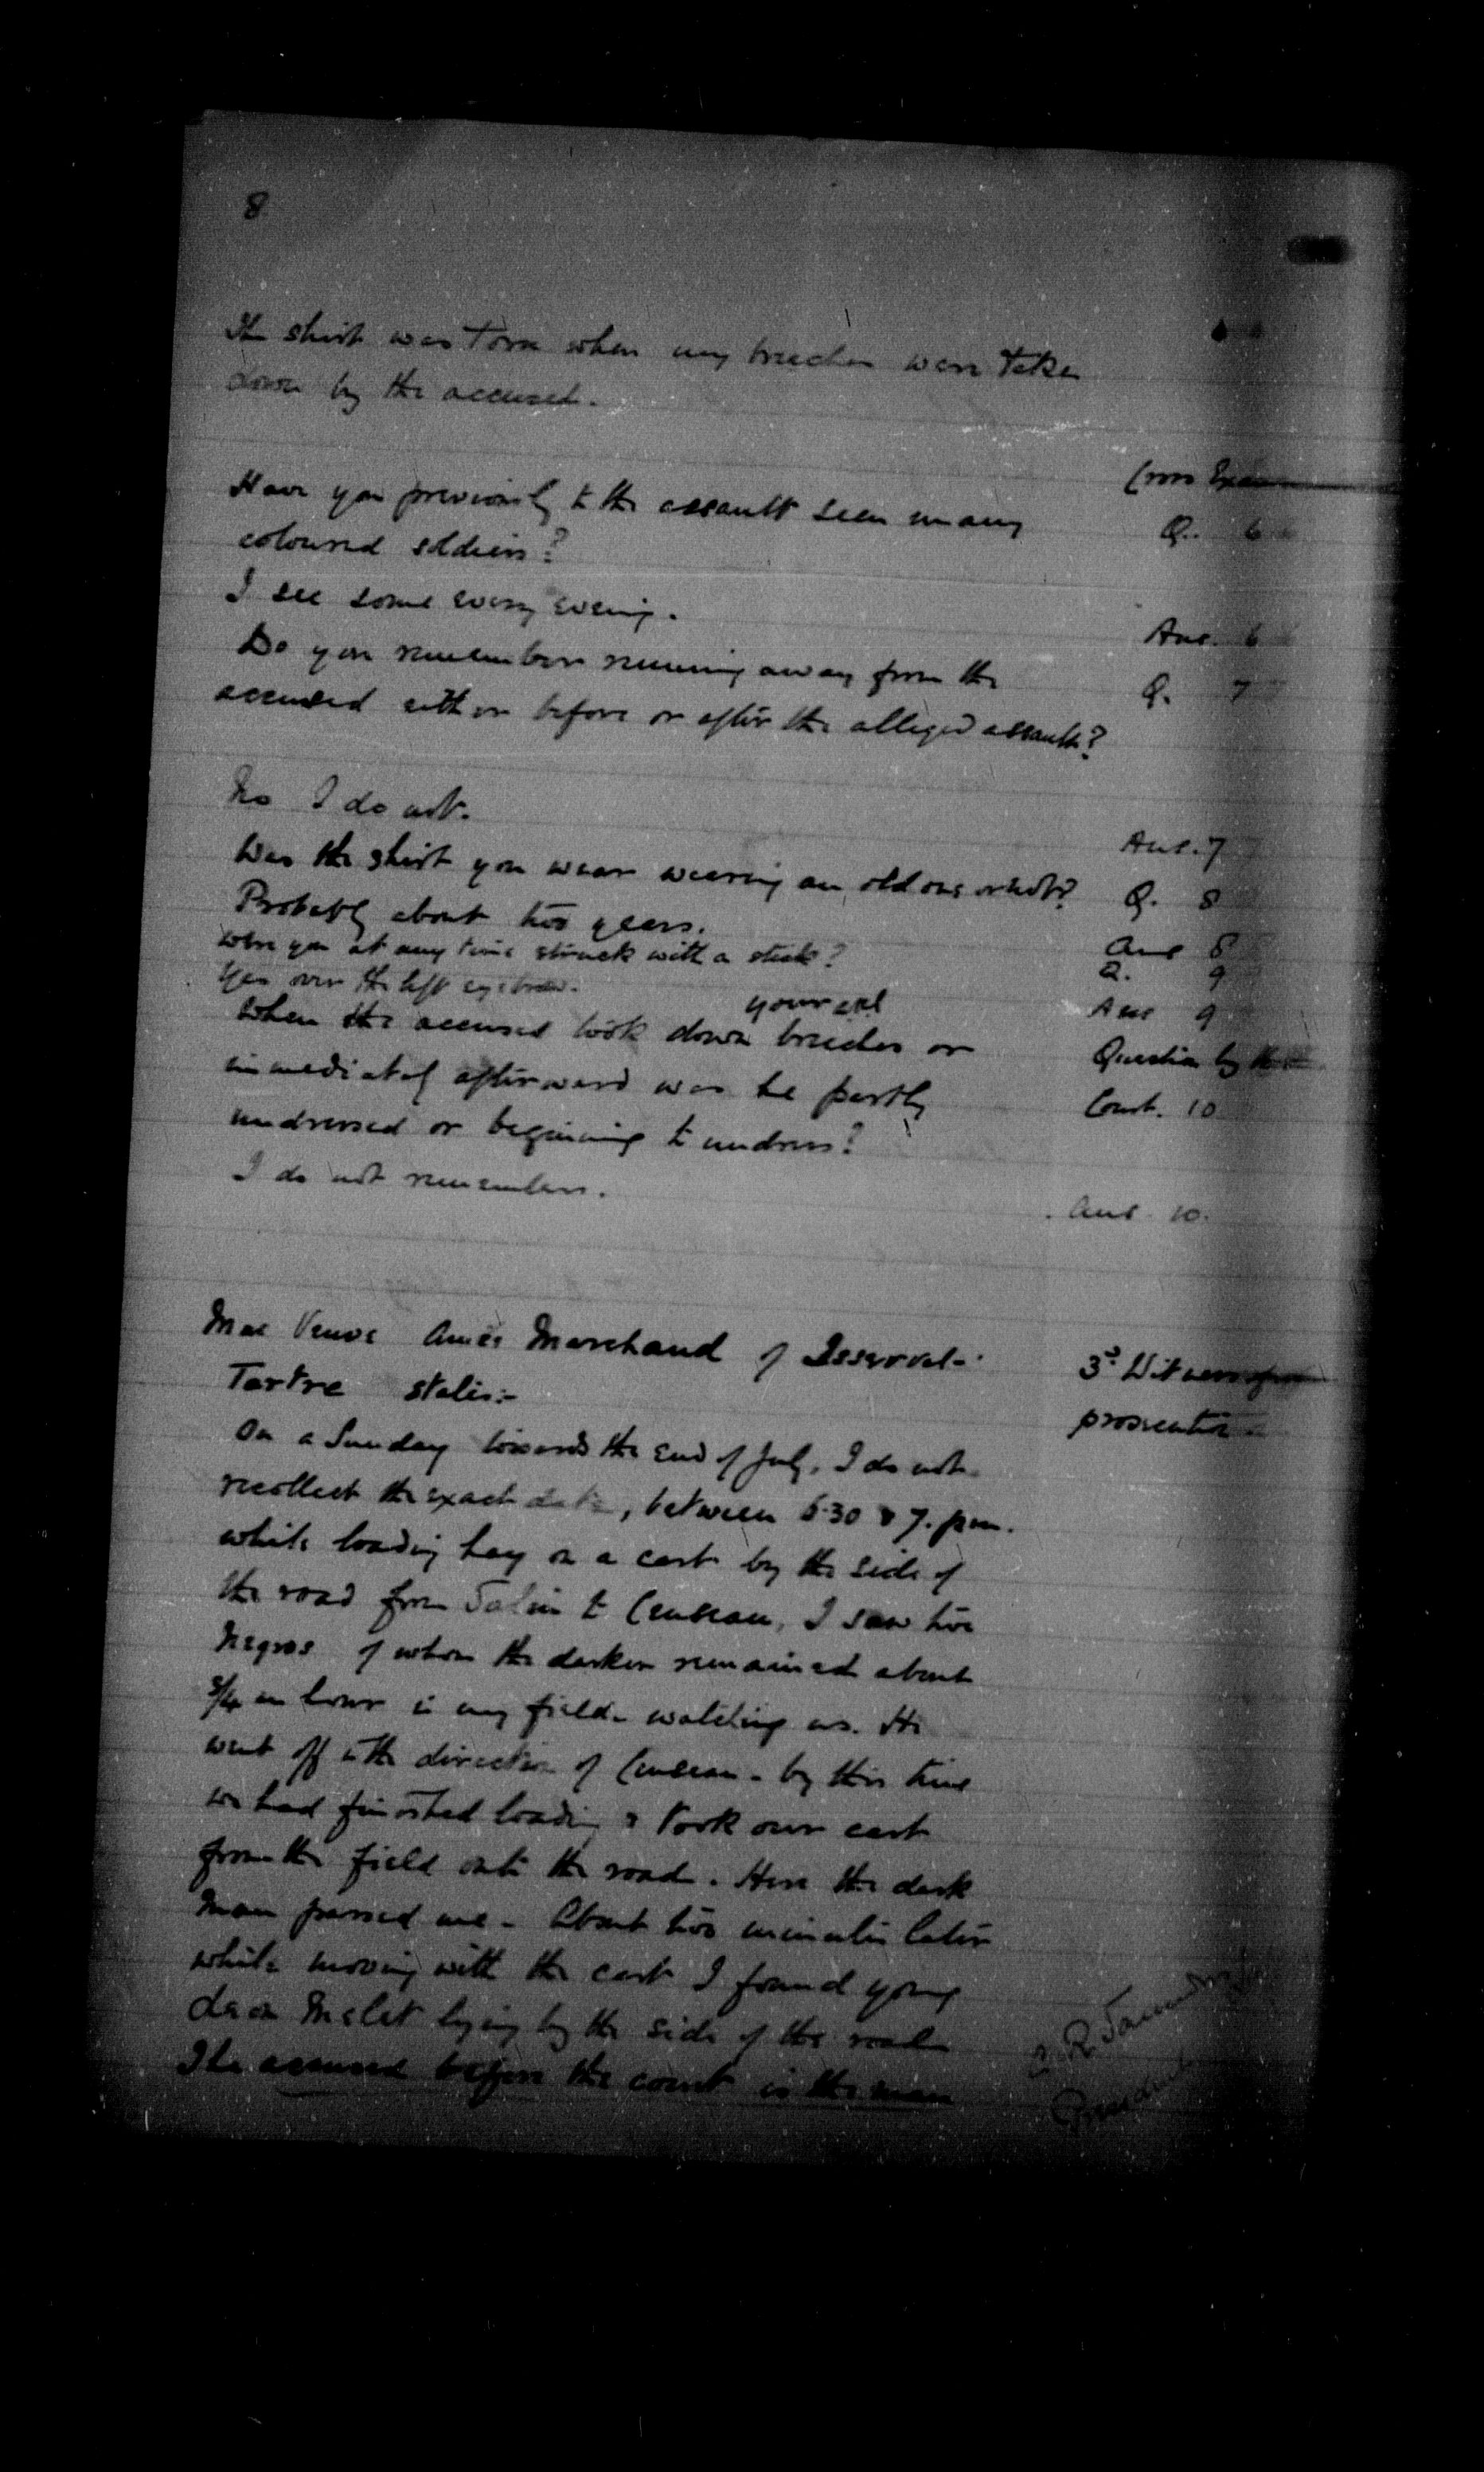 8
The shirt was torn when my breeches were taken
down by the accused.
Cross Exam
Have you previously to the assault seen many
Q. 6
coloured soldiers?
I see some every evening.
Ans. 6
Do you remember running away from the
Q. 7
accused either before or after the alleged assault?
No I do not.
Ans. 7
Was the shirt you wear wearing an old one or not?
Q. 8
Probably about two years.
Ans 8
Were you at any time struck with a stick?
Q. 9
Yes over the left eyebrow.
Ans 9
your
When the accused took down breeches or
Question by the
immediately afterward was he partly
Court. 10
undressed or beginning to undress?
I do not remember.
Ans 10.
Mae Veuve Marchand of
3d Witness for
Tartre states:-
prosecution
On a Sunday towards the end of July, I do not
recollect the exact date, between 6.30 & 7. pm.
while loading hay on a cart by the side of
the road from Salin to Censeau, I saw two
negros of whom the darker remained about
3/4 an hour in my field watching us. He
went off in the direction of Censeau - by this time
we had finished loading & took our cart
from the field onto the road. Here the dark
man passed me - About two minutes later
while moving with the cart I found young
Melet lying by the side of the road
The accused before the court is the man
President